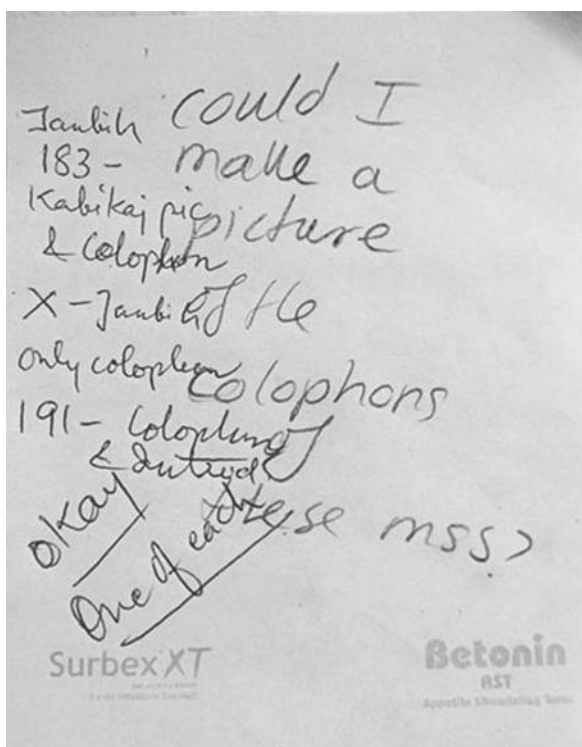 could I
make a
picture
of the
colophons
of
these mss?
Tanbih
183 -
Kabikaj pic
& Colophon
X - Tanbih
only colophon
191 - Colophon
& Introd.
okay
One of each
Surbex XT
Betonin
AST
Appetite Stimulating Tonic